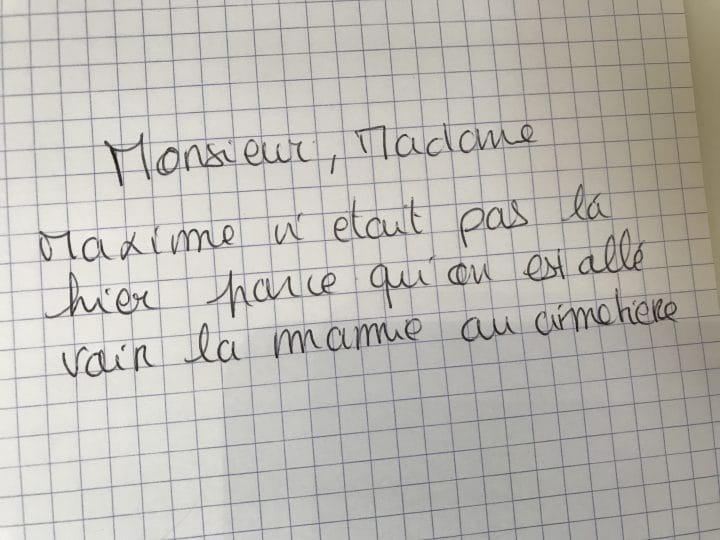 Monsieur, Madame
Maxime n'etait pas là
hier parce qu'on est allé
voir la mamie au cimetière